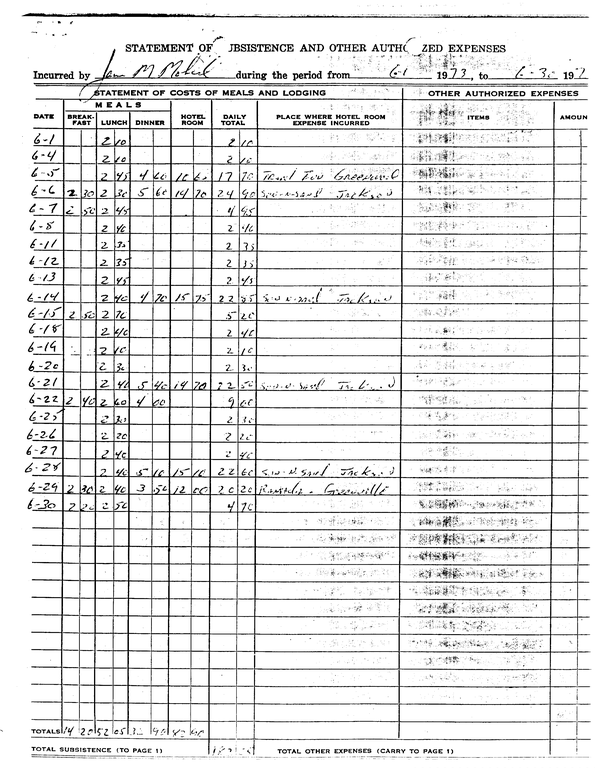 STATEMENT OF BSISTENCE AND OTHER AUTH ZED EXPENSES
Incurred by M during the period from 6-1 1973, to 6-30 197
STATEMENT OF COSTS OF MEALS AND LODGING OTHER AUTHORIZED EXPENSES
MEALS
DATE BREAK-FAST LUNCH DINNER HOTEL ROOM DAILY TOTAL PLACE WHERE HOTEL ROOM EXPENSE INCURRED ITEMS AMOUN
6-1 2 10 2 10
6-4 2 10 2 10
6-5 2 45 4 60 10 65 17 70 Greenwood
6-6 2 30 2 30 5 60 14 70 24 90 Sun-n-Sand Jackson
6-7 2 50 2 45 4 95
6-8 2 40 2 40
6-11 2 35 2 35
6-12 2 35 2 35
6-13 2 45 2 45
6-14 2 40 4 70 15 75 22 85 Sun-n-Sand Jackson
6-15 2 50 2 70 5 20
6-18 2 40 2 40
6-19 2 10 2 10
6-20 2 30 2 30
6-21 2 40 5 40 14 70 22 50 Sun-n-Sand Jackson
6-22 2 40 2 60 4 00 9 00
6-25 2 30 2 30
6-26 2 20 2 20
6-27 2 40 2 40
6-28 2 40 5 10 15 10 22 60 Sun-N-Sand Jackson
6-29 2 30 2 40 3 50 12 00 20 20 Ramada - Greenville
6-30 2 20 2 50 4 70
TOTALS 14 20 52 05 32 90
TOTAL SUBSISTENCE (TO PAGE 1) TOTAL OTHER EXPENSES (CARRY TO PAGE 1)